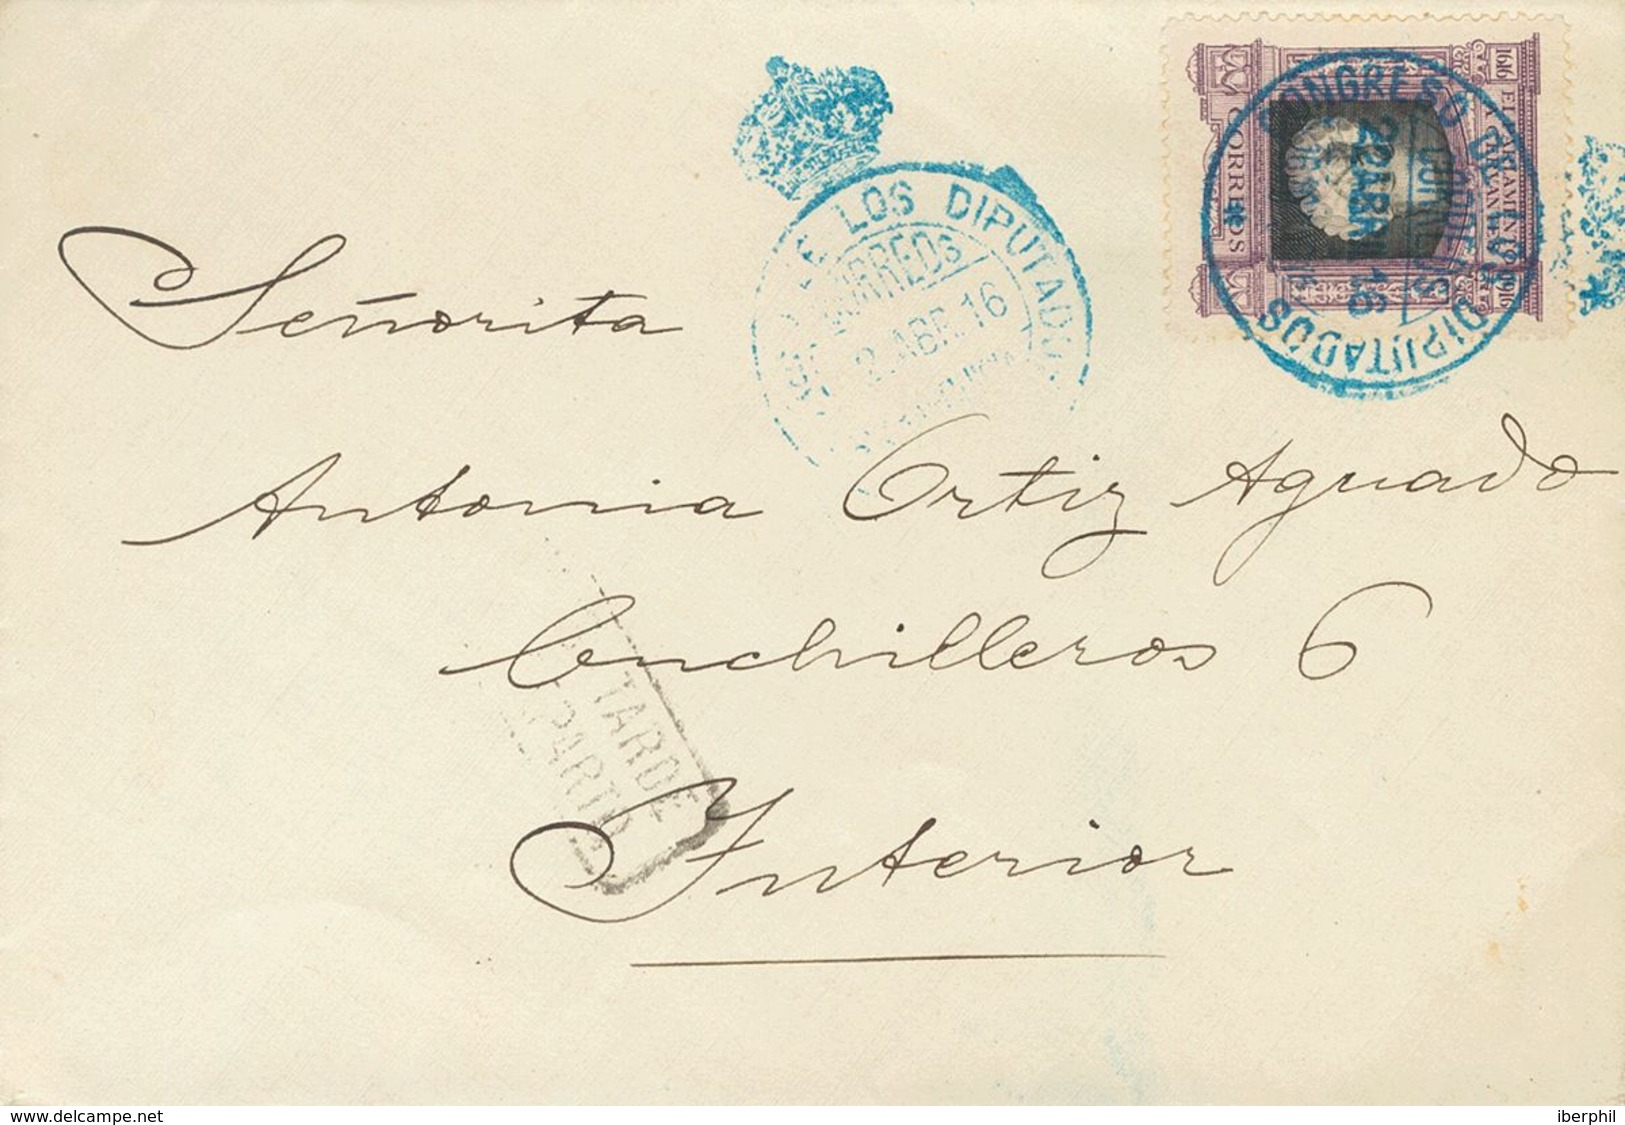 CONGRESO DE LOS DIPUTADOS
CORREOS
22 ABR. 16
1616 EL PARLAMENTO
CORREOS
DE LOS DIPUTADOS
CORREOS
2 ABR. 16
Señorita
Antonia Ortiz Aguado
Cuchilleros 6
TARDE
Interior
www.delcampe.net
iberphil